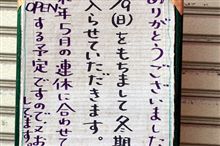 ありがとうございました
/9(日)をもちまして冬期
入らせていただきます。
年5月の連休に合わせて
OPENする予定ですので又お
します。